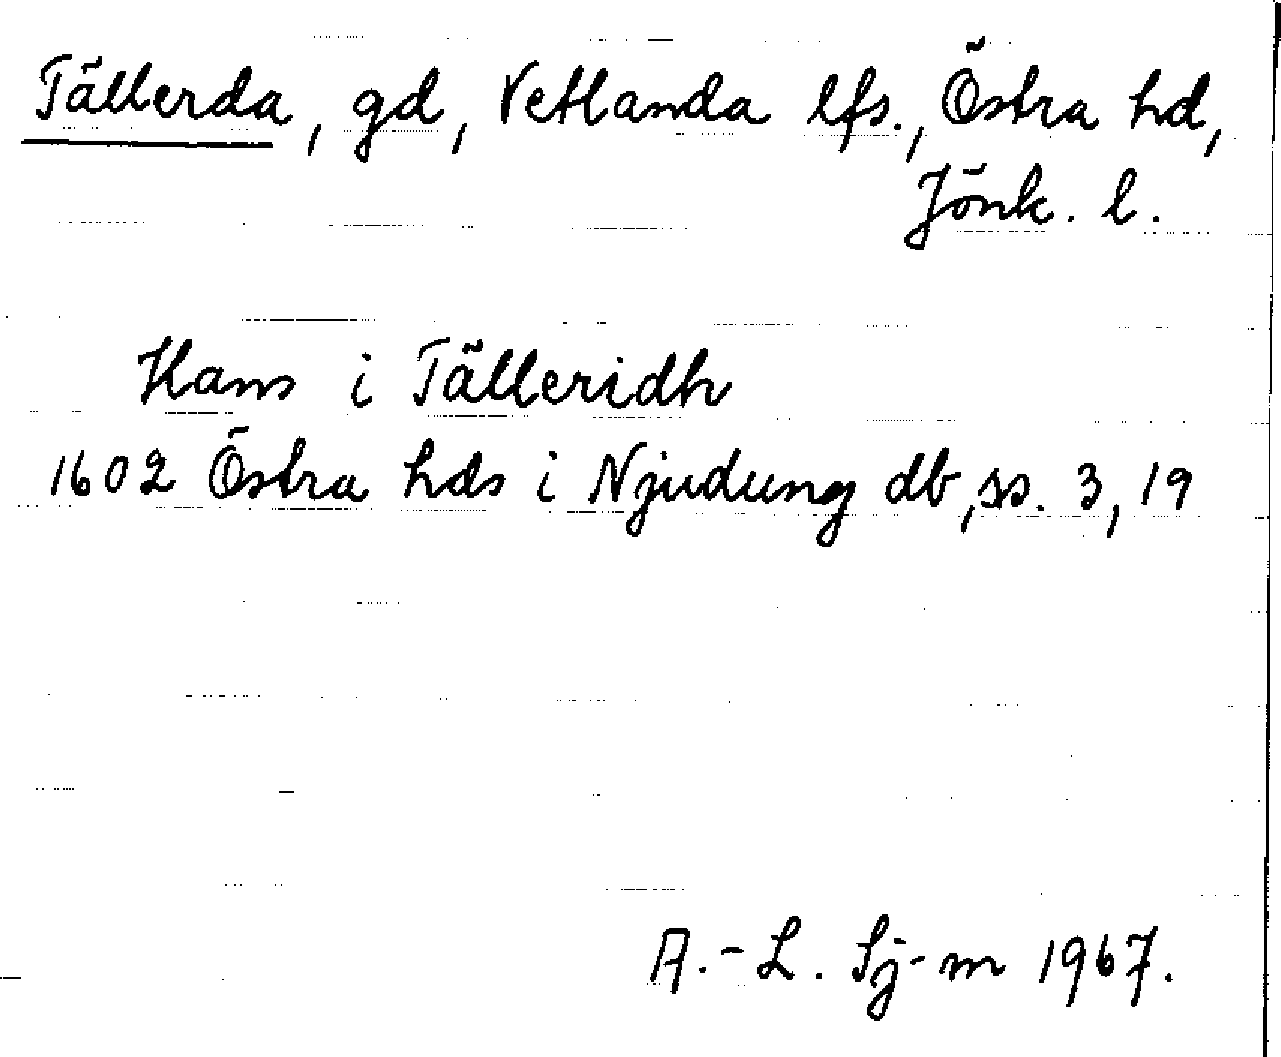 Tällerda, gd, Vetlanda lfs., Östra hd,
Jönk. l.
Hans i Tälleridh
1602 Östra hds i Njudung db, ss. 3, 19
A.-L. Sj-m 1967.